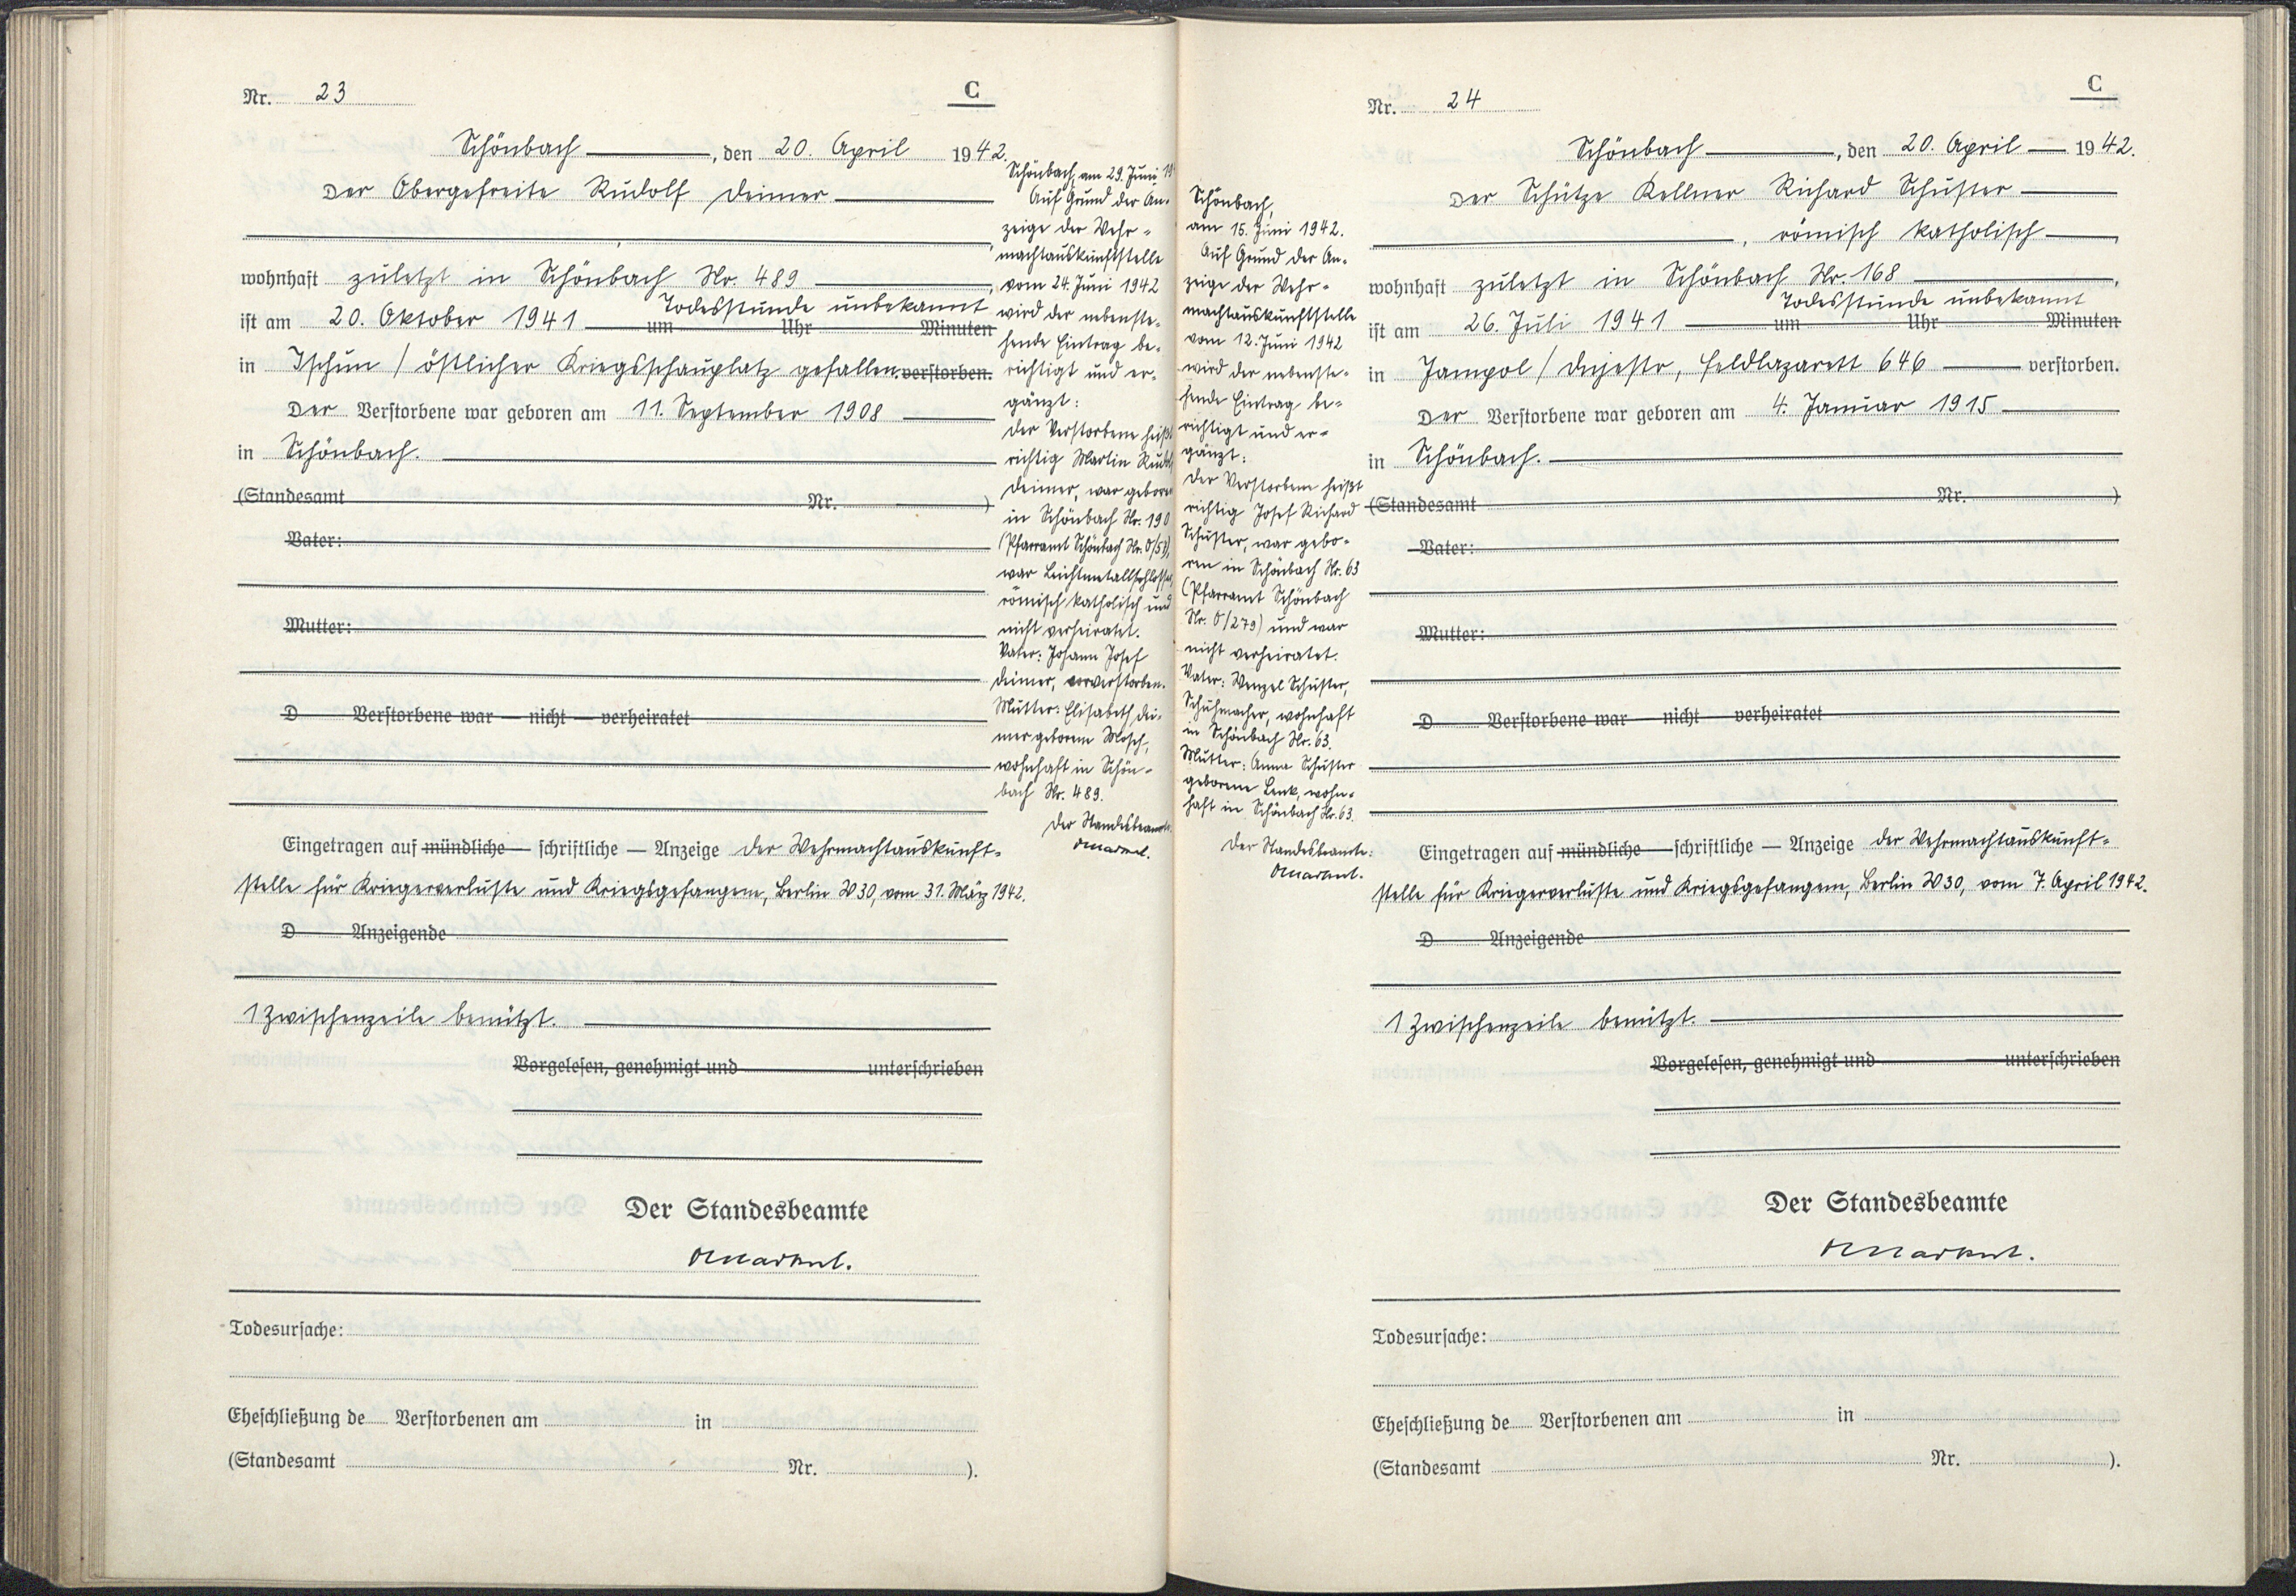 Nr. 23
C
Schönbach, den 20. April 1942.
Der Obergefreite Rudolf Deimer
wohnhaft zuletzt in Schönbach Nr. 489,
Todesstunde unbekannt
ist am 20. Oktober 1941 um Uhr Minuten
in Ischun / östlicher Kriegsschauplatz gefallen. verstorben.
Der Verstorbene war geboren am 11. September 1908
in Schönbach.
(Standesamt Nr. )
Vater:
Mutter:
D Verstorbene war — nicht — verheiratet
Eingetragen auf mündliche — schriftliche — Anzeige der Wehrmachtauskunft-
stelle für Kriegerverluste und Kriegsgefangene, Berlin W 30, vom 31. März 1942.
D Anzeigende
1 Zwischenzeile benützt.
Vorgelesen, genehmigt und unterschrieben
Der Standesbeamte
Todesursache:
Eheschließung de Verstorbenen am in
(Standesamt Nr. ).
Schönbach, am 29. Juni 19
Auf Grund der An-
zeige der Wehr-
machtauskunftstelle
vom 24. Juni 1942
wird der nebenste-
hende Eintrag be-
richtigt und er-
gänzt:
Der Verstorbene heißt
richtig Martin Rudolf
Deimer, war geboren
in Schönbach Nr. 190
(Pfarramt Schönbach Nr. O/53),
war Leichtmetallschlosser,
römisch katholisch und
nicht verheiratet.
Vater: Johann Josef
Deimer, vorverstorben.
Mutter: Elisabeth Dei-
mer geborene Mosch,
wohnhaft in Schön-
bach Nr. 489.
Der Standesbeamte:
Schönbach,
am 15. Juni 1942.
Auf Grund der An-
zeige der Wehr-
machtauskunftstelle
vom 12. Juni 1942
wird der nebenste-
hende Eintrag be-
richtigt und er-
gänzt:
Der Verstorbene heißt
richtig Josef Richard
Schuster, war gebo-
ren in Schönbach Nr. 63
(Pfarramt Schönbach
Nr. O/279) und war
nicht verheiratet.
Vater: Wenzel Schuster,
Schuhmacher, wohnhaft
in Schönbach Nr. 63.
Mutter: Anna Schuster
geborene Lenk, wohn-
haft in Schönbach Nr. 63.
Der Standesbeamte:
Nr. 24
C
Schönbach, den 20. April 1942.
Der Schütze Kellner Richard Schuster
, römisch katholisch,
wohnhaft zuletzt in Schönbach Nr. 168,
Todesstunde unbekannt
ist am 26. Juli 1941 um Uhr Minuten
in Jampol / Dnjestr, Feldlazarett 646 verstorben.
Der Verstorbene war geboren am 4. Januar 1915
in Schönbach.
(Standesamt Nr. )
Vater:
Mutter:
D Verstorbene war — nicht — verheiratet
Eingetragen auf mündliche — schriftliche — Anzeige der Wehrmachtauskunft-
stelle für Kriegerverluste und Kriegsgefangene, Berlin W 30, vom 7. April 1942.
D Anzeigende
1 Zwischenzeile benützt.
Vorgelesen, genehmigt und unterschrieben
Der Standesbeamte
Todesursache:
Eheschließung de Verstorbenen am in
(Standesamt Nr. ).